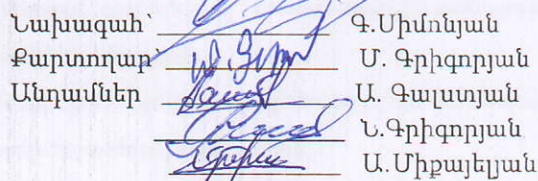 Նախագահ՝ Գ.Սիմոնյան
Քարտողար՝ Մ. Գրիգորյան
Անդամներ Ա. Գալստյան
Ն.Գրիգորյան
Ա.Միքայելյան